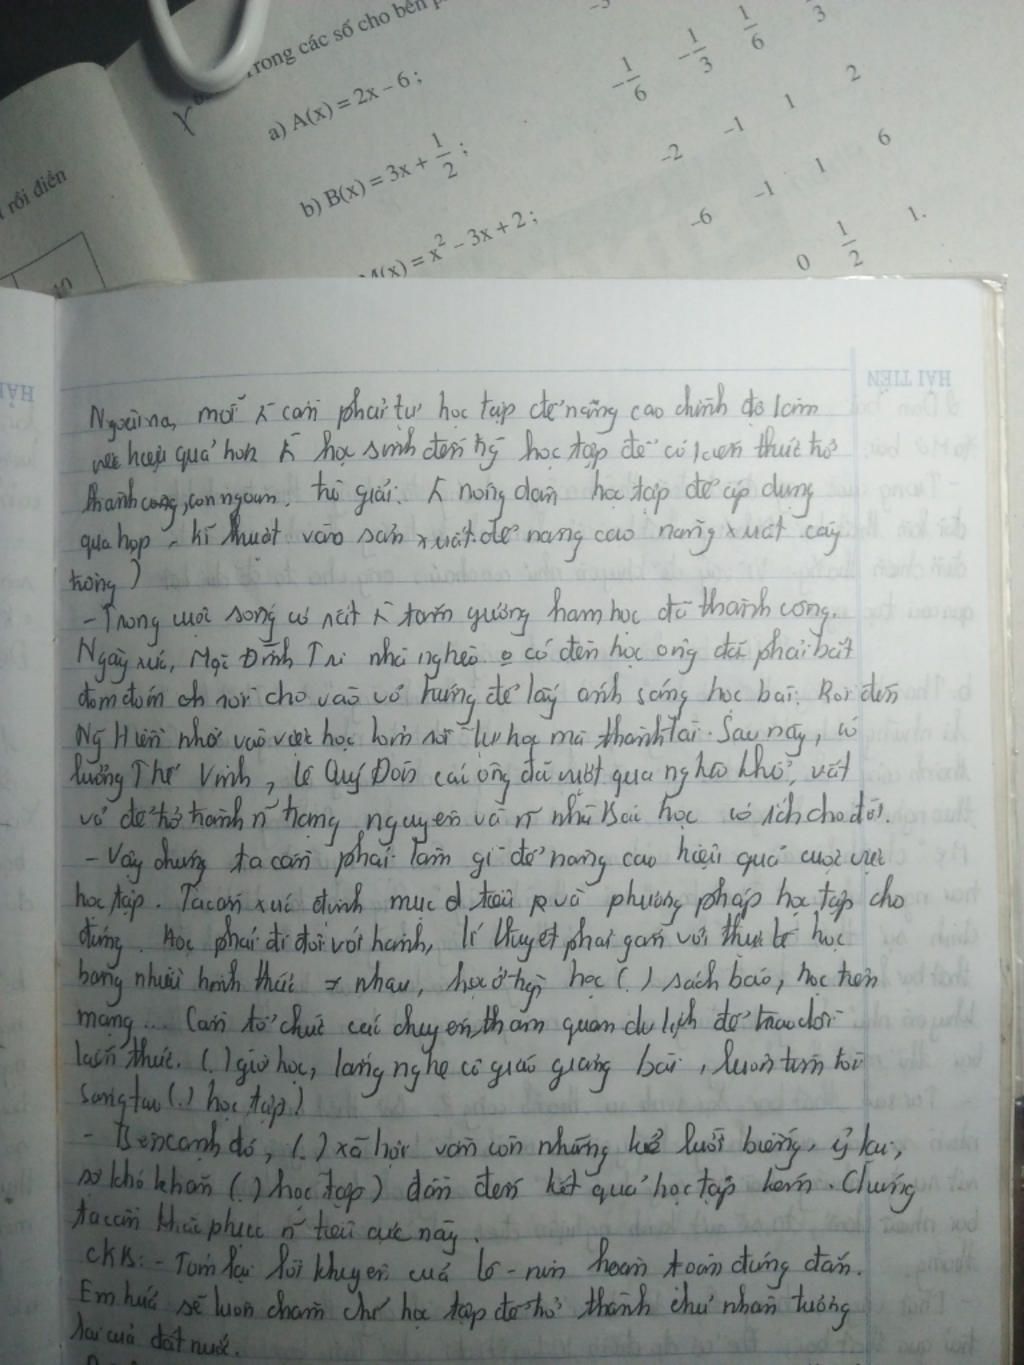 trong các số cho bên
a) A(x) = 2x – 6 ;
b) B(x) = 3x + 1/2 ;
M(x) = x² – 3x + 2 ;
–3
–1/6 –1/3 1/6 3
–2 –1 1 2
–6 –1 1 6
0 1/2 1.
rồi điền
HẢI TIẾN
mỗi cần phải tự học tập để nâng cao độ làm
quả hơn học sinh đến học tập để có kiến thức trở
thành công, con ngoan, trò giỏi. nông dân học tập để áp dụng
kĩ thuật vào sản xuất để nâng cao năng xuất cây
trồng)
- Trong cuộc sống có rất tấm gương ham học đã thành công.
Ngày xưa, Mạc Đĩnh Tri nhà nghèo o có đèn học ông đã phải bắt
đom đóm rồi cho vào vỏ trứng để lấy ánh sáng học bài. Rồi đến
Ng Hiền nhờ vào việc học lỏm rồi tự học mà thành tài. Sau này, có
Lương Thế Vinh, Lê Quý Đôn các ông đã vượt qua nghèo khổ, vất
vả để trở thành n trạng nguyên và n nhà bác học có ích cho đời.
- Vậy chúng ta cần phải làm gì để nâng cao hiệu quả việc
học tập. Ta cần xác định mục đ tiêu và phương pháp học tập cho
đúng. Học phải đi đôi với hành, lí thuyết phải gắn với thực tế học
bằng nhiều hình thức ≠ nhau, học ở học (.) sách báo, học trên
mạng... Cần tổ chức các chuyến tham quan du lịch để trao dồi
kiến thức. (.) giờ học, lắng nghe cô giáo giảng bài, luôn tìm tòi
sáng tạo (.) học tập)
- Bên cạnh đó, (.) xã hội vẫn còn những kẻ lười biếng, ỷ lại,
sợ khó khăn (.) học tập) dẫn đến kết quả học tập kém. Chúng
ta cần khắc phục n tiêu cực này.
CKB: - Tóm lại lời khuyên của Lê-nin hoàn toàn đúng đắn.
Em hứa sẽ luôn chăm chỉ học tập để trở thành chủ nhân tương
lai của đất nước.